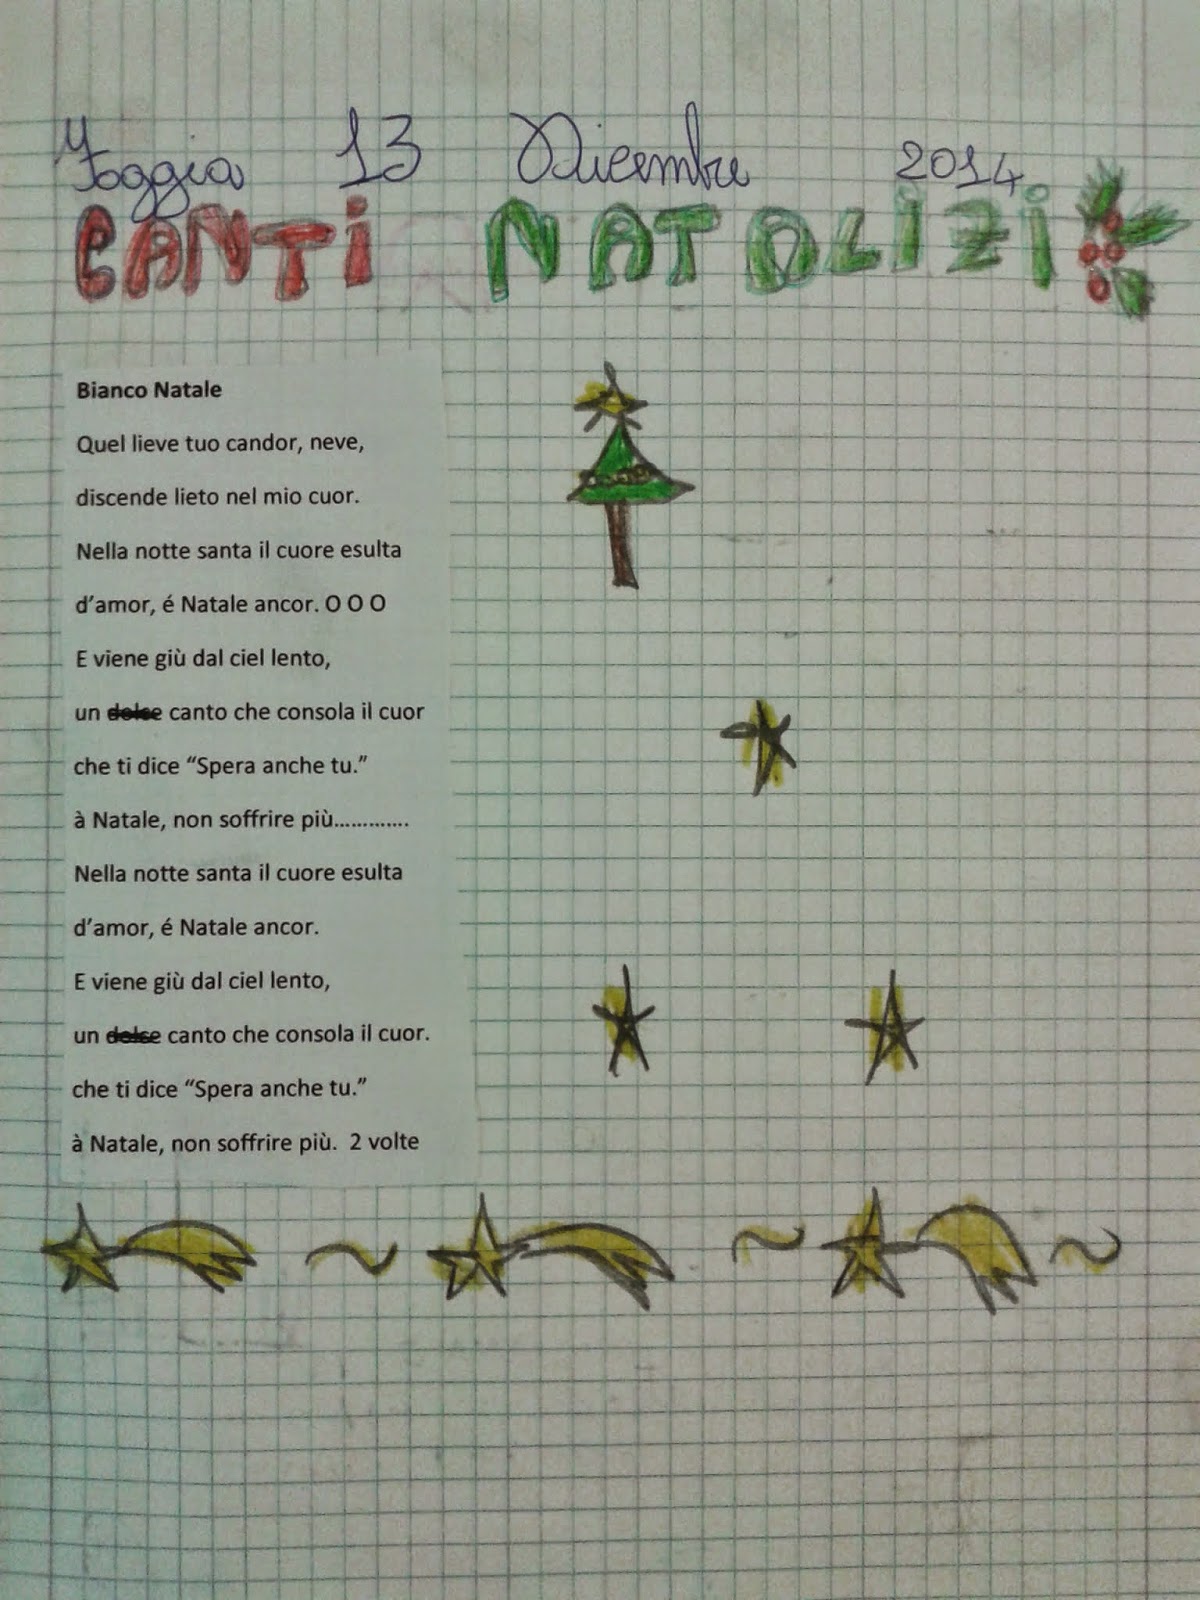 Foggia 13 Dicembre 2014
CANTI NATOLIZI
Bianco Natale
Quel lieve tuo candor, neve,
discende lieto nel mio cuor.
Nella notte santa il cuore esulta
d’amor, é Natale ancor. O O O
E viene giù dal ciel lento,
un dolce canto che consola il cuor
che ti dice “Spera anche tu.”
à Natale, non soffrire più………….
Nella notte santa il cuore esulta
d’amor, é Natale ancor.
E viene giù dal ciel lento,
un dolce canto che consola il cuor.
che ti dice “Spera anche tu.”
à Natale, non soffrire più. 2 volte